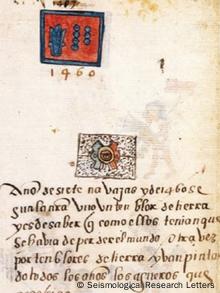 1460
Año de siete navajas y de 1460 se
gun la nra vuo un tenblor de tierra
y es de saber q como ellos tenian que
se havia de perder el mundo otra vez
por tenblores de tierra yvan pinta
do todos los años los agueros que
© Seismological Research Letters